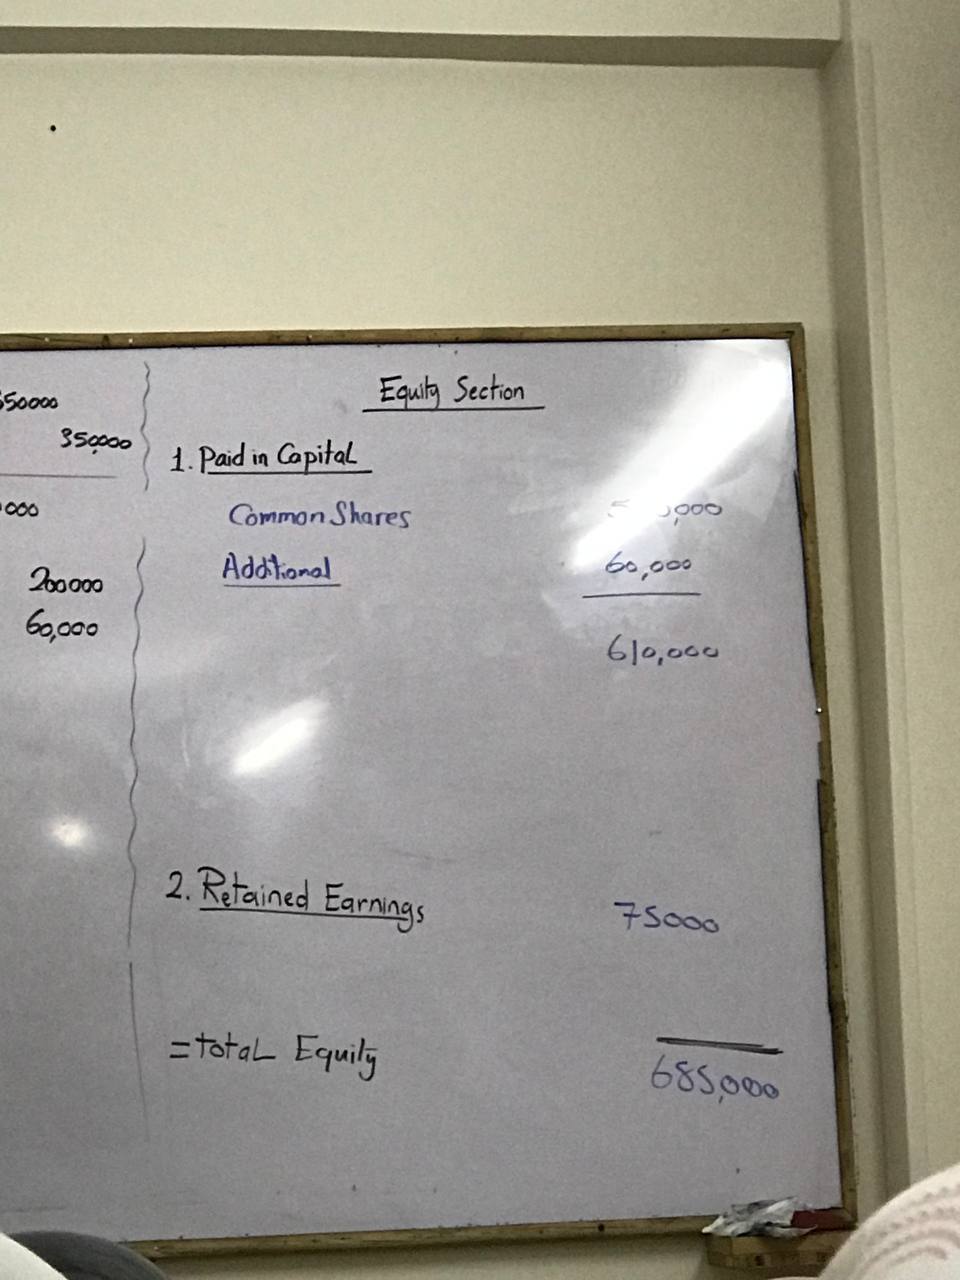 50000
350,000
000
200000
60,000
Equity Section
1. Paid in Capital
Common Shares
Additional 60,000
610,000
2. Retained Earnings 75000
= total Equity 685,000